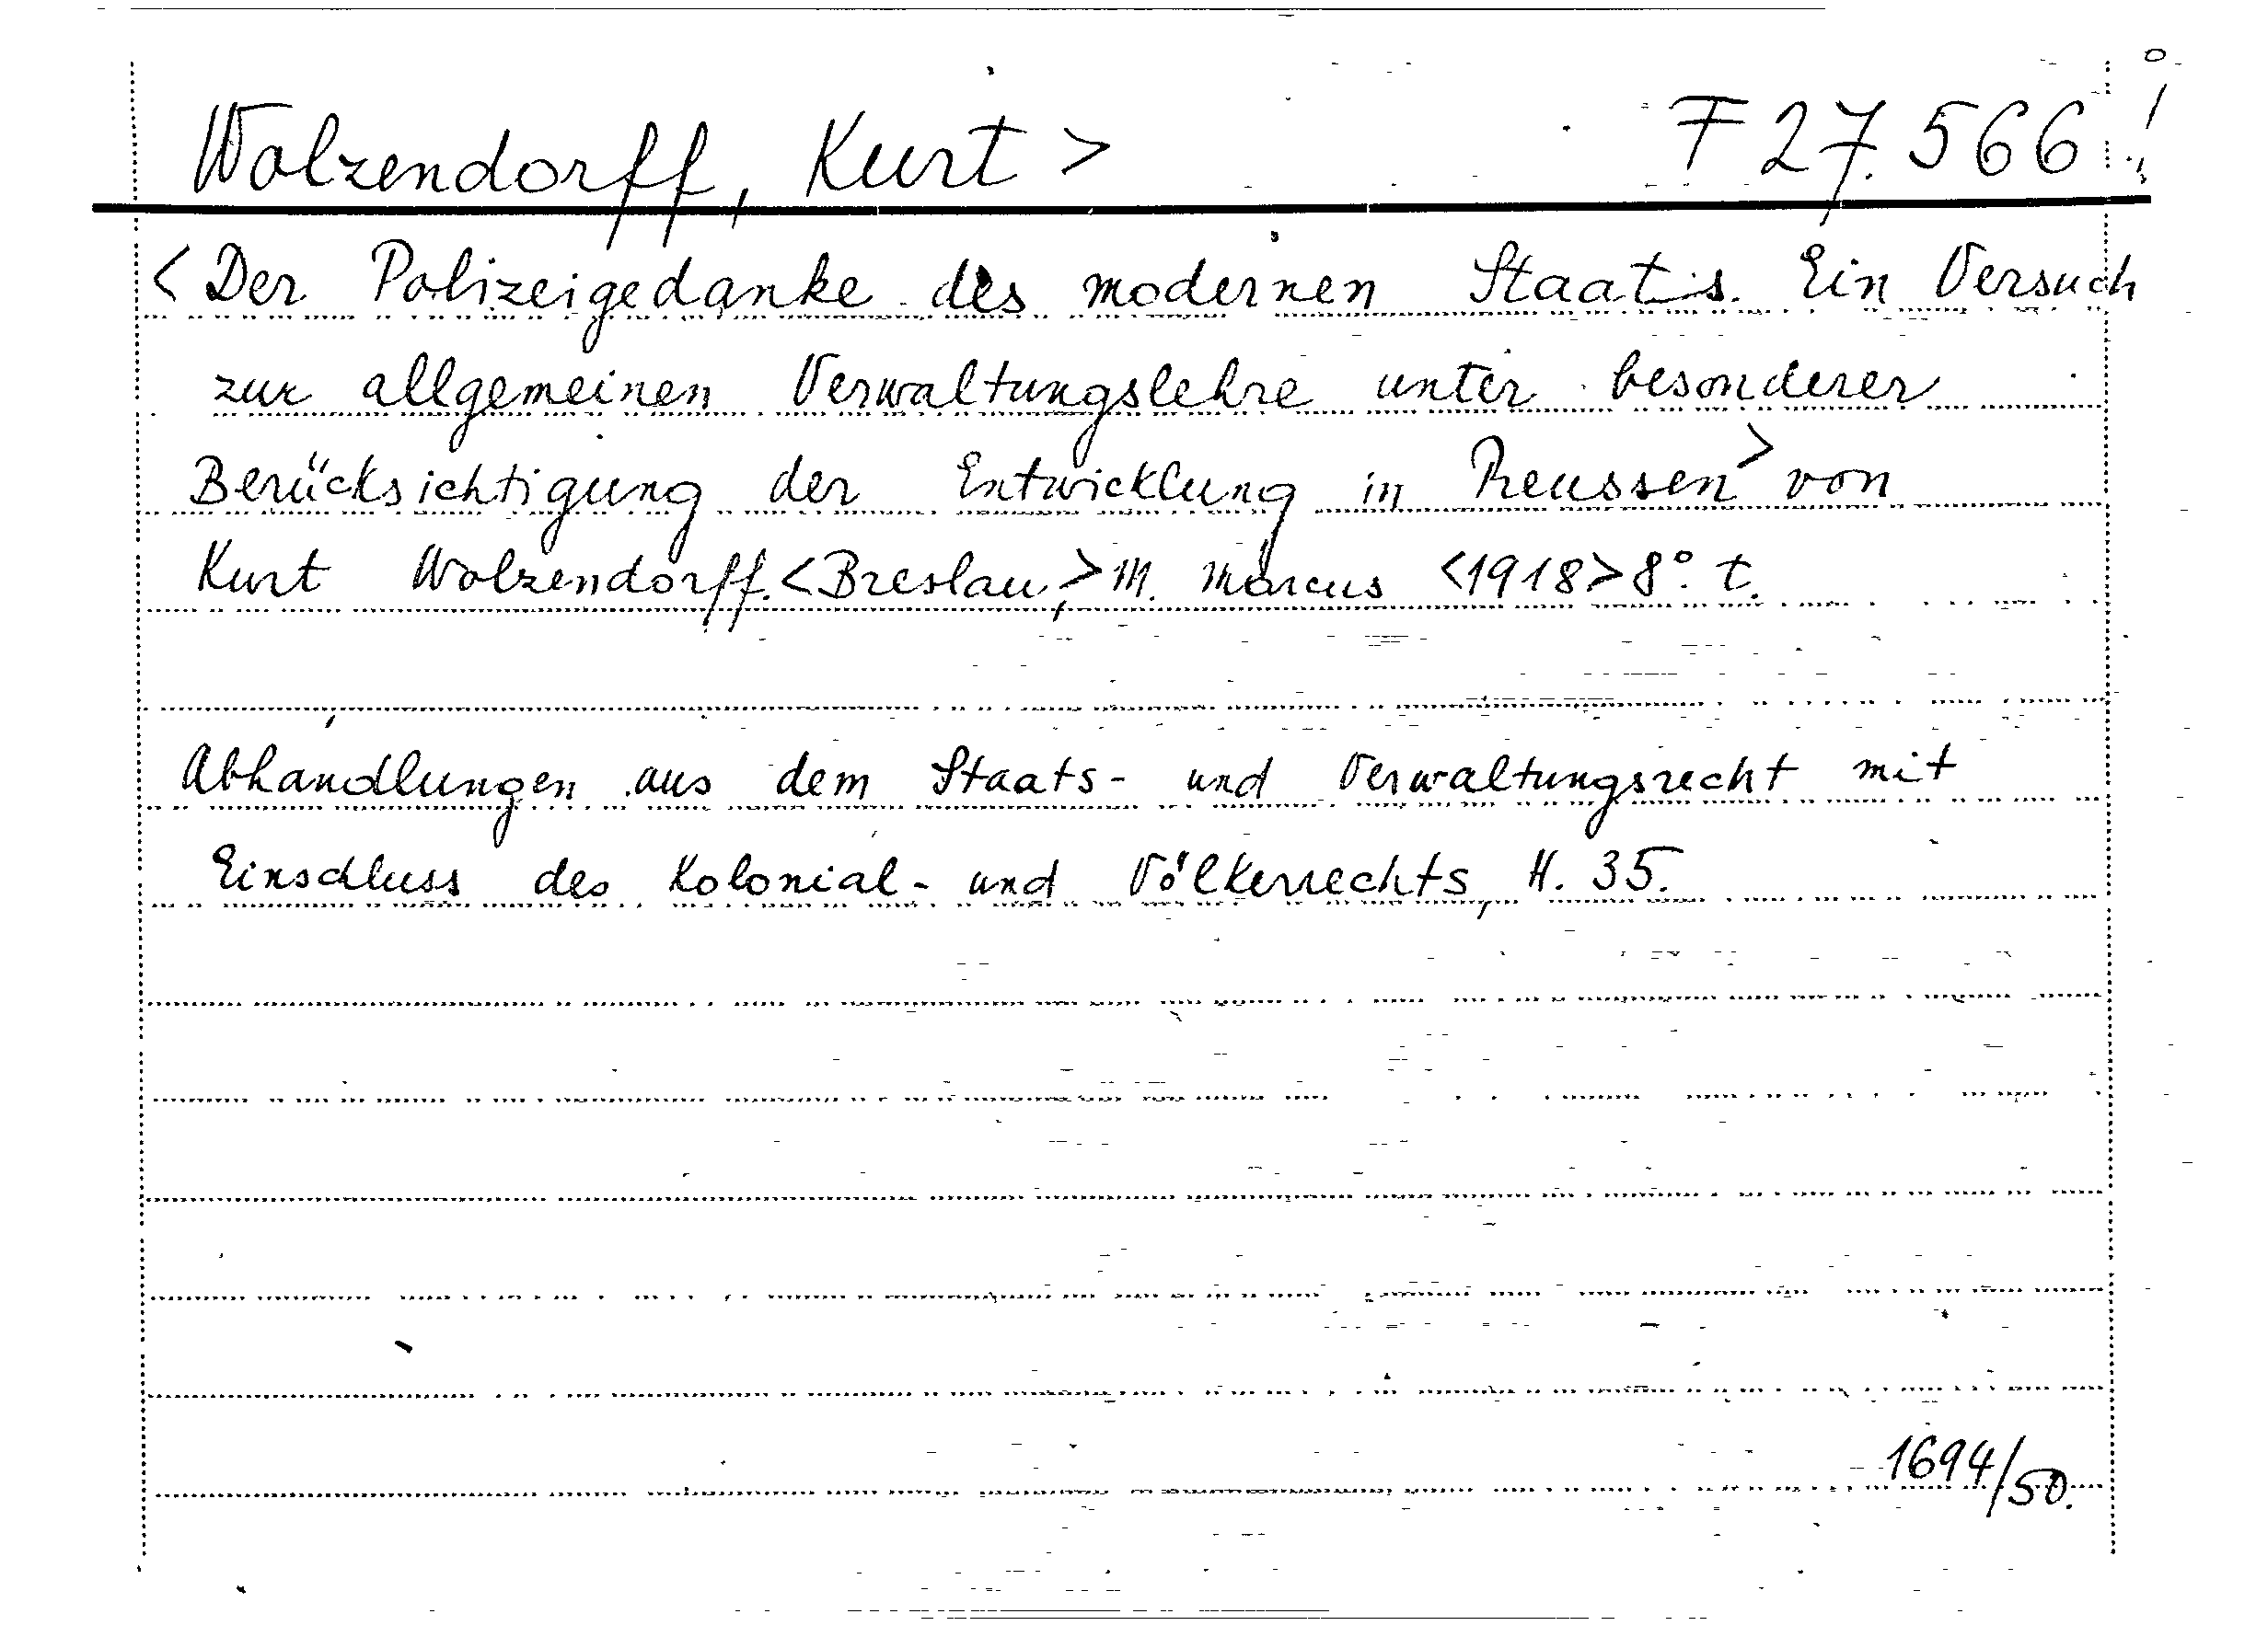 Wolzendorff, Kurt > F 27.566 !
< Der Polizeigedanke des modernen Staats. Ein Versuch
zur allgemeinen Verwaltungslehre unter besonderer
Berücksichtigung der Entwicklung in Preussen > von
Kurt Wolzendorff. < Breslau, > M. Marcus < 1918 > 8°. t.
Abhandlungen aus dem Staats- und Verwaltungsrecht mit
Einschluss des Kolonial- und Völkerrechts, H. 35.
1694/50.